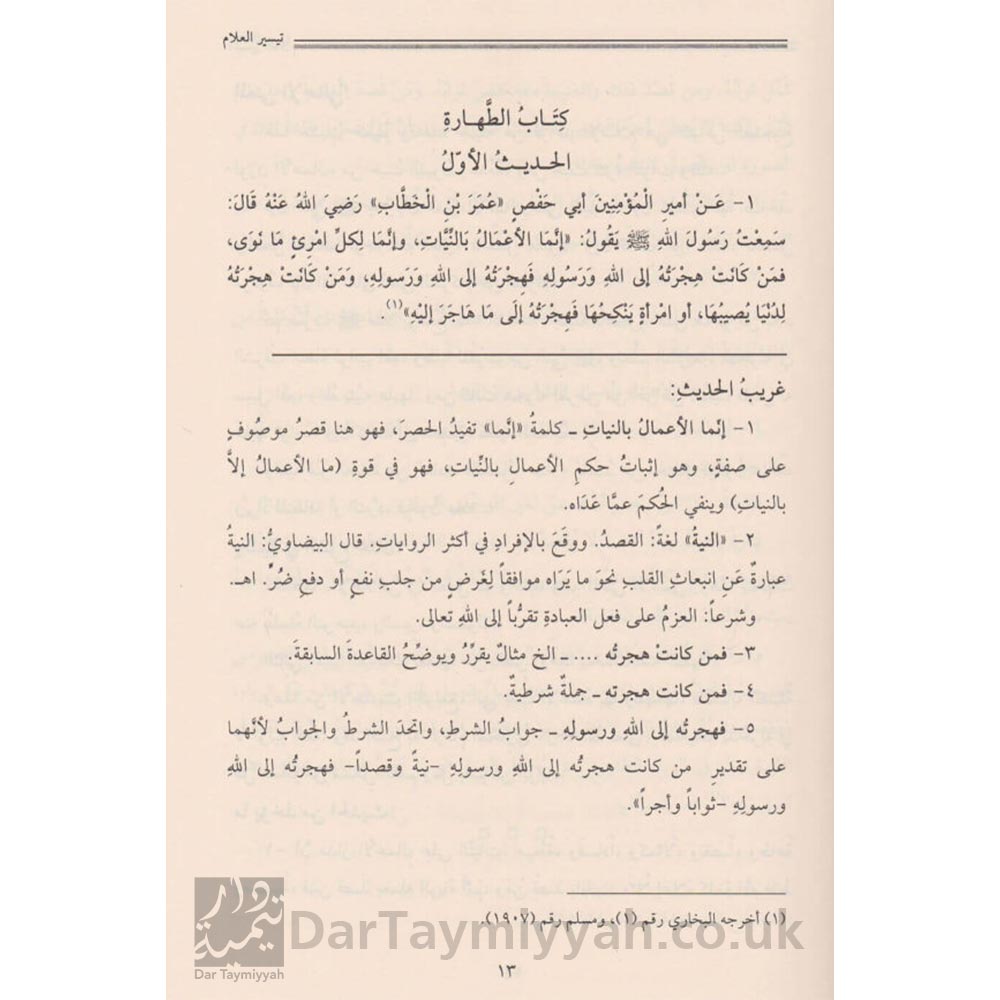 تيسير العلام
كِتَابُ الطَّهارةِ
الحديثُ الأوّلُ
١- عَنْ أميرِ الْمُؤْمِنِينَ أبي حَفْصٍ «عُمَرَ بْنِ الْخَطَّابِ» رَضِيَ اللهُ عَنْهُ قَالَ:
سَمِعْتُ رَسُولَ اللهِ ﷺ يَقُولُ: «إنَّمَا الأعْمَالُ بَالنِّيَّاتِ، وإنَّمَا لِكلِّ امْرِئٍ مَا نَوَى،
فمَنْ كَانَتْ هِجْرَتُهُ إلى اللهِ وَرَسُولِهِ فَهِجْرَتُهُ إلى اللهِ وَرَسولِهِ، وَمَنْ كَانَتْ هِجْرَتُهُ
لِدُنْيَا يُصيبُهَا، أو امْرأةٍ يَنْكِحُهَا فَهِجْرَتُهُ إلَى مَا هَاجَرَ إليْهِ»(١).
غريبُ الحديثِ:
١- إنَّما الأعمالُ بالنياتِ ـ كلمةُ «إنَّما» تفيدُ الحصرَ، فهو هنا قصرُ موصُوفٍ
على صفةٍ، وهو إثباتُ حكمِ الأعمالِ بالنِّياتِ، فهو في قوةِ (ما الأعمالُ إلاَّ
بالنياتِ) وينفي الحُكمَ عمَّا عَدَاه.
٢- «النيةُ» لغةً: القصدُ. ووقعَ بالإفرادِ في أكثر الرواياتِ. قال البيضاويُّ: النيةُ
عبارةٌ عَنِ انبعاثِ القلبِ نحوَ ما يَرَاه موافقاً لِغَرضٍ من جلبِ نفعٍ أو دفعِ ضُرٍّ. اهـ.
وشرعاً: العزمُ على فعل العبادةِ تقرُّباً إلى اللهِ تعالى.
٣- فمن كانتْ هجرتُه .... ـ الخ مثالٌ يقرِّرُ ويوضِّحُ القاعدةَ السابقةَ.
٤- فمن كانت هجرته ـ جملةٌ شرطيةٌ.
٥- فهجرتُه إلى اللهِ ورسولِهِ ـ جوابُ الشرطِ، واتحدَ الشرطُ والجوابُ لأنَّهما
على تقديرِ من كانت هجرتُه إلى اللهِ ورسولِهِ -نيةً وقصداً- فهجرتُه إلى اللهِ
ورسولِهِ -ثواباً وأجراً».
(١) أخرجه البخاري رقم (١)، ومسلم رقم (١٩٠٧).
١٣
دار تيمية
Dar Taymiyyah
DarTaymiyyah.co.uk